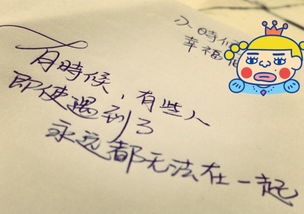 月時候，有些人
即使遇到了
永远都无法在一起
時候
幸福